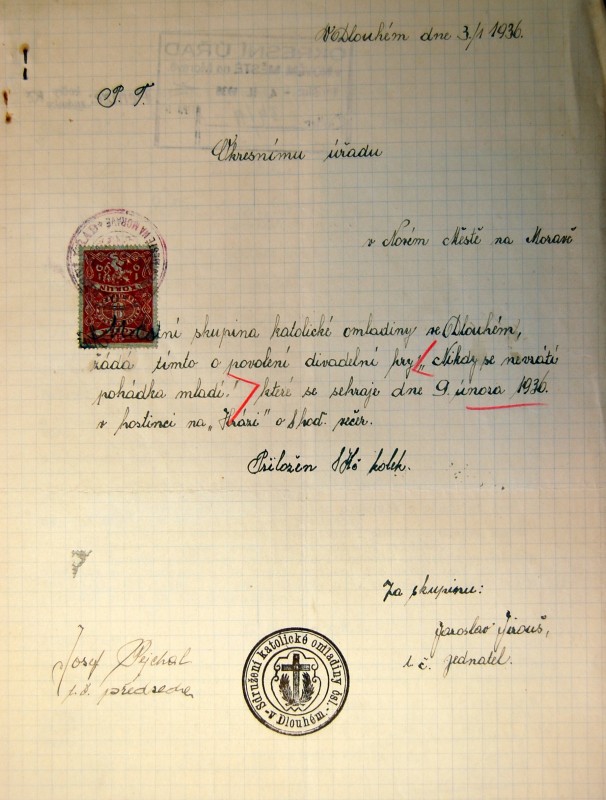 V Dlouhém dne 3./1 1936.
P. T.
Okresnímu úřadu
v Novém Městě na Moravě
Místní skupina katolické omladiny ve Dlouhém,
žádá tímto o povolení divadelní hry „Nikdy se nevrátí
pohádka mládí." které se sehraje dne 9. února 1936.
v hostinci na „Hrázi" o 8 hod. večer.
Přiložen 5 Kč kolek.
Za skupinu:
Jaroslav Jirouš,
t. č. jednatel.
Josef
t. č. předseda
Sdružení katolické omladiny čsl.
- v Dlouhém. -